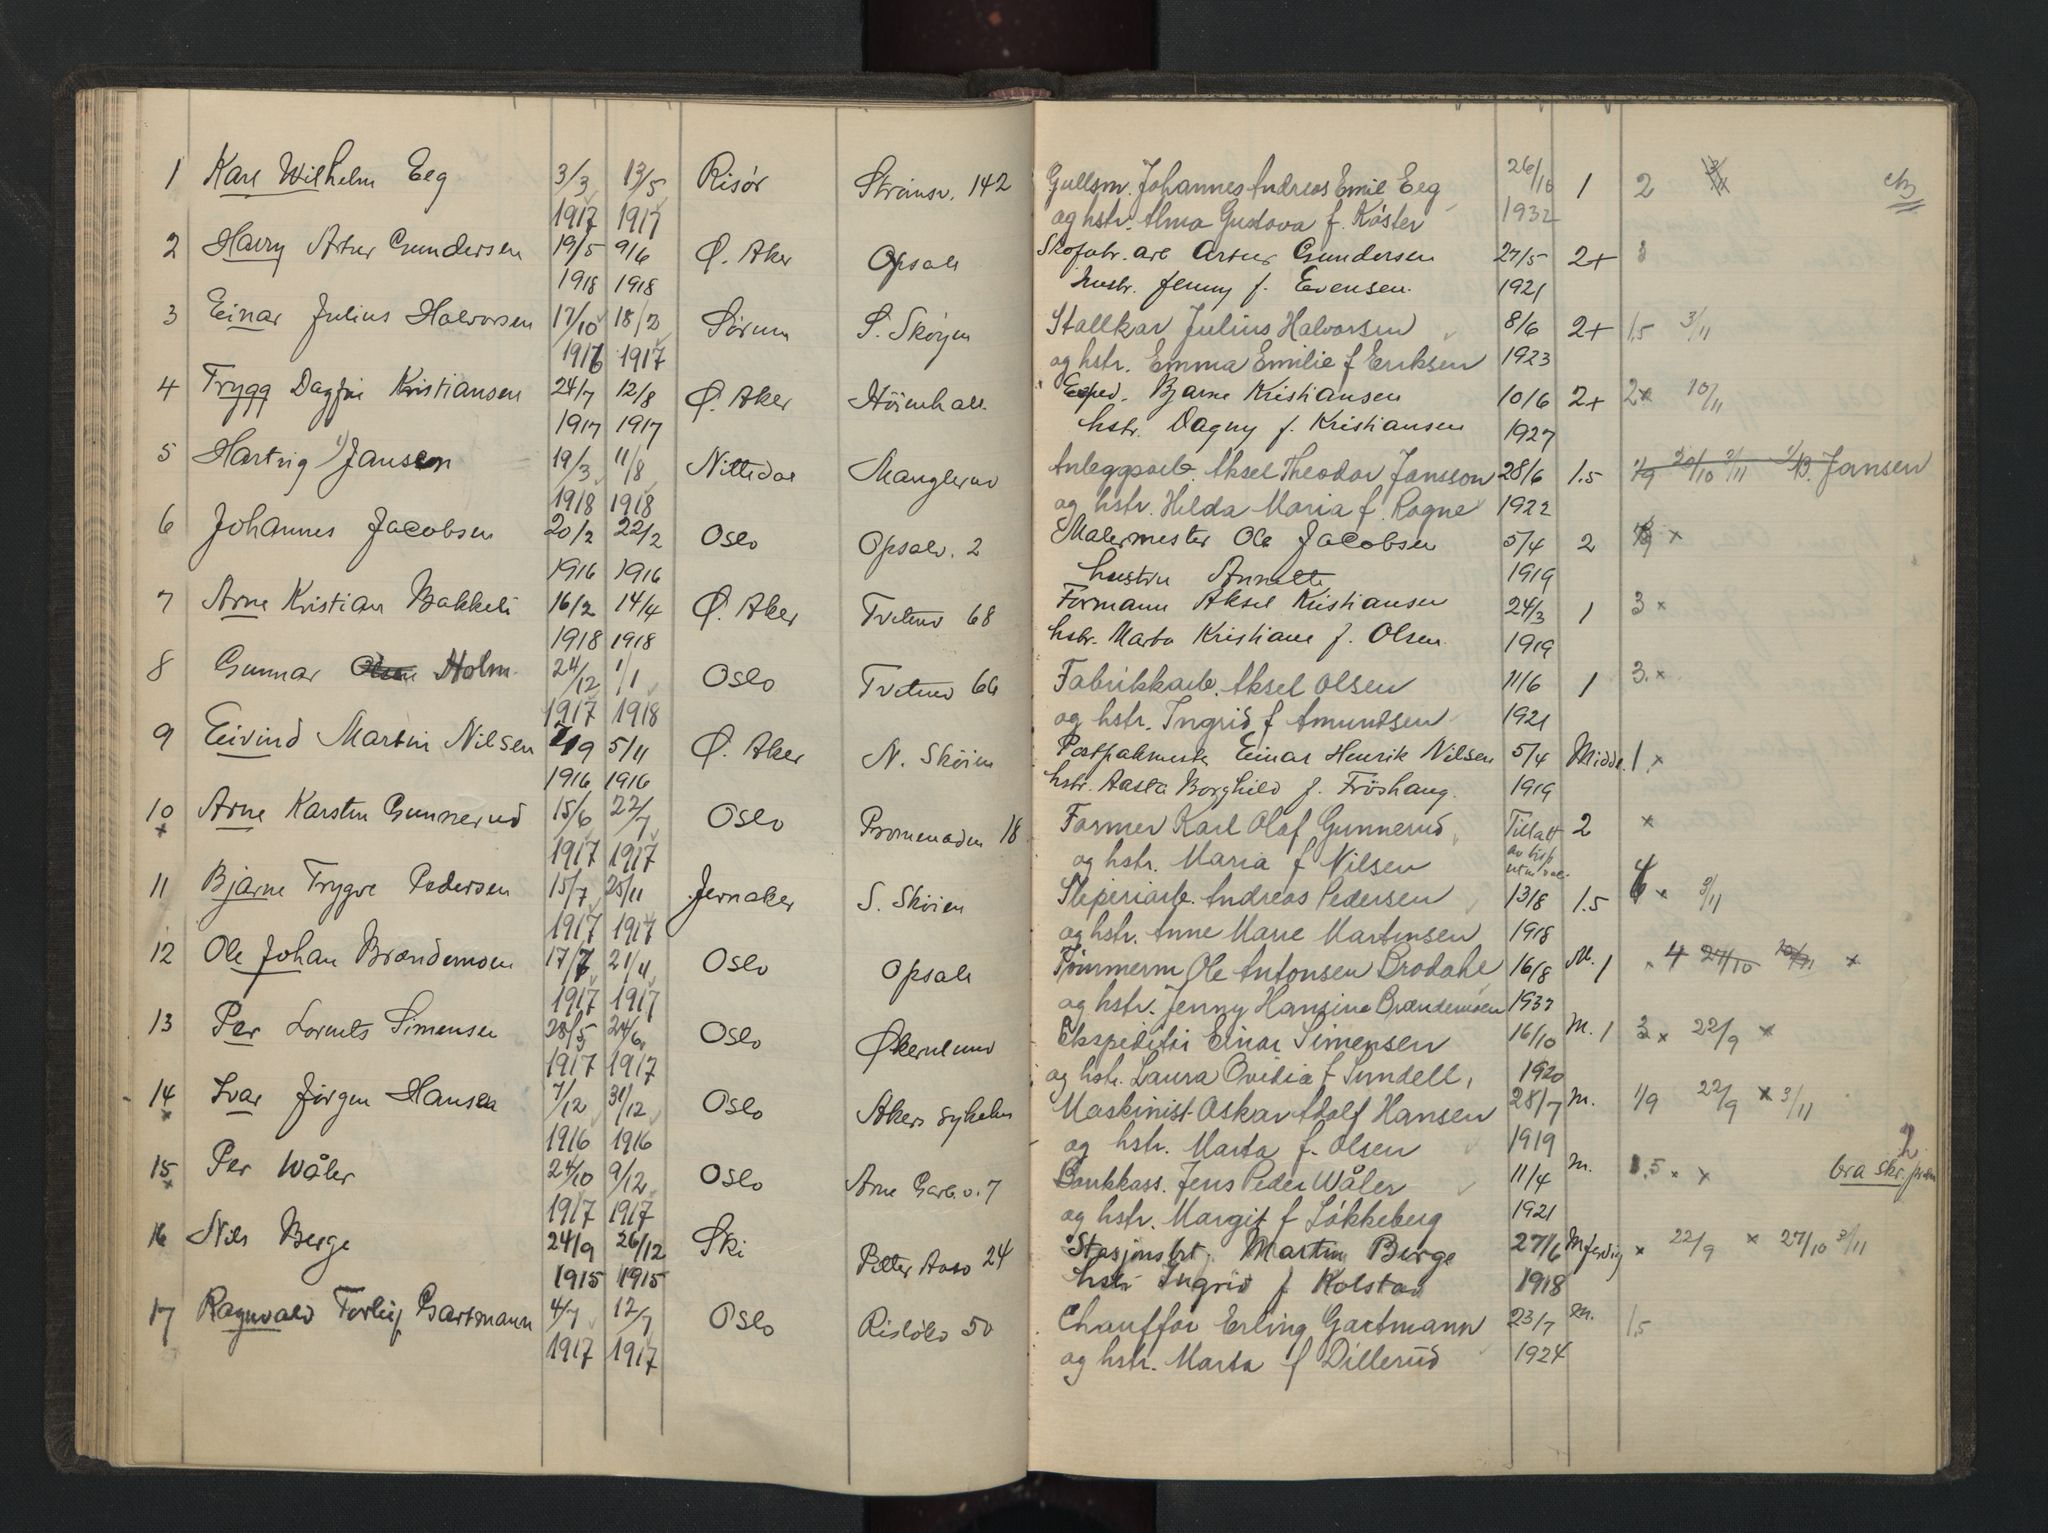 1 Karl Wilhelm Eeg 3/3 13/5 Risør Strømsv. 142 Gullsm. Johannes Andreas Emil Eeg 26/10 1 2
1917 1917 og hstr. Alma Gustava f. Køster 1932
2 Harry Artur Gundersen 19/5 9/6 Ø. Aker Opsal Skofabr. arb Artur Gundersen 27/5 2+ 3
1918 1918 hustr. Jenny f. Evensen. 1921
3 Einar Julius Halvorsen 17/10 18/2 Sørum S. Skøyen Stallkar Julius Halvorsen 8/6 2+ 1,5 3/11
1916 1917 og hstr. Emma Emilie f Eriksen 1923
4 Trygg Dagfin Kristiansen 24/7 12/8 Ø. Aker Høienhall Exped. Bjarne Kristiansen 10/6 2+ 2x 10/11
1917 1917 hstr. Dagny f. Kristiansen 1927
5 Hartvig 1) Jansen 19/3 11/8 Nittedal Manglerud Anleggsarb. Aksel Theodor Jansson 28/6 1.5 1/9 20/10 3/11 1/ B. Jansen
1918 1918 og hstr. Hilda Maria f. Ragne 1922
6 Johannes Jacobsen 20/2 22/2 Oslo Opsalv. 2 Malermester Ole Jacobsen 5/4 2 x
1916 1916 hustru Annette 1919
7 Arne Kristian Bakkeli 16/2 14/4 Ø. Aker Tvetenv 68 Formann Aksel Kristiansen 24/3 1 3 x
1918 1918 hstr. Marta Kristiane f. Olsen. 1919
8 Gunnar Olsen Holm. 24/12 1/1 Oslo Tvetenv 66 Fabrikkarb. Aksel Olsen 11/6 1 3. x
1917 1918 og hstr. Ingrid f Amundsen 1921
9 Eivind Martin Nilsen 7/9 5/11 Ø. Aker N. Skøien Postpakmester Einar Henrik Nilsen 5/4 Midd. 1 x
1916 1916 hstr. Aasta Borghild f. Frøshaug. 1919
10 x Arne Karsten Gunnerud 15/6 22/7 Oslo Promenaden 18 Former Karl Olaf Gunnerud Tillatt 2 x
1917 1917 og hstr. Maria f Nilsen av bisp
11 Bjarne Trygve Pedersen 15/7 25/11 Jevnaker S. Skøien Sliperiarb. Andreas Pedersen 13/8 1.5 4 x 3/11
1917 1917 og hstr. Anne Marie Martinsen 1918
12 Ole Johan Brændemoen 17/7 21/4 Oslo Opsal Tømmerm Ole Antonsen Brodahl 16/8 M. 1 4 27/10 10/11 x
1917 1917 og hstr. Jenny Hansine Brændemoen 1937
13 Per Lorents Simensen 28/5 24/6 Oslo Økernlund Ekspeditør Einar Simensen 16/10 M. 1 3 x 22/9 x
1917 1917 og hstr. Laura Ovidia f Sundell, 1920
14 x Ivar Jørgen Hansen 7/12 31/12 Oslo Akers sykehus Maskinist Oskar Adolf Hansen 28/7 M. 1/9 22/9 x 3/11
1916 1916 og hstr. Marta f. Olsen 1919 2
15 x Per Wåler 24/10 9/12 Oslo Arne Garb. v. 7 Bankkass. Jens Peder Wåler 11/4 M. 1.5 x x bra skr. prøve
1917 1917 og hstr. Margit f Løkkeberg 1921
16 Nils Berge 24/9 26/12 Ski Peller Aaso 24 Stasjonsbtj. Martin Berge 27/6 M ferdig x 22/9 x 27/10 3/11
1915 1915 hstr Ingrid f Kolstad 1918
17 Ragnvald Torleif Gartmann 4/7 12/7 Oslo Risløkv 50 Chauffør Erling Gartmann 23/7 M. 1.5
1917 1917 og hstr. Marta f Dillerud 1924